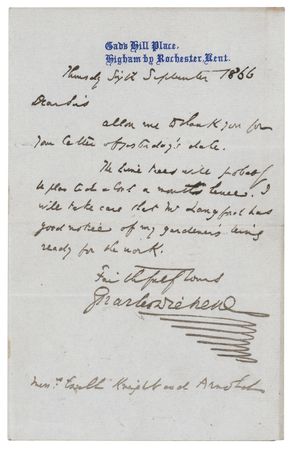 Gad's Hill Place,
Higham by Rochester, Kent.
Thursday Sixth September 1866
Dear Sirs
allow me to thank you for
your letter of yesterday's date.
The lime trees will probably
be planted about a month hence. I
will take care that Mr Langford has
good notice of my gardener's being
ready for the work.
Faithfully Yours
Charles Dickens
Messrs Knight and